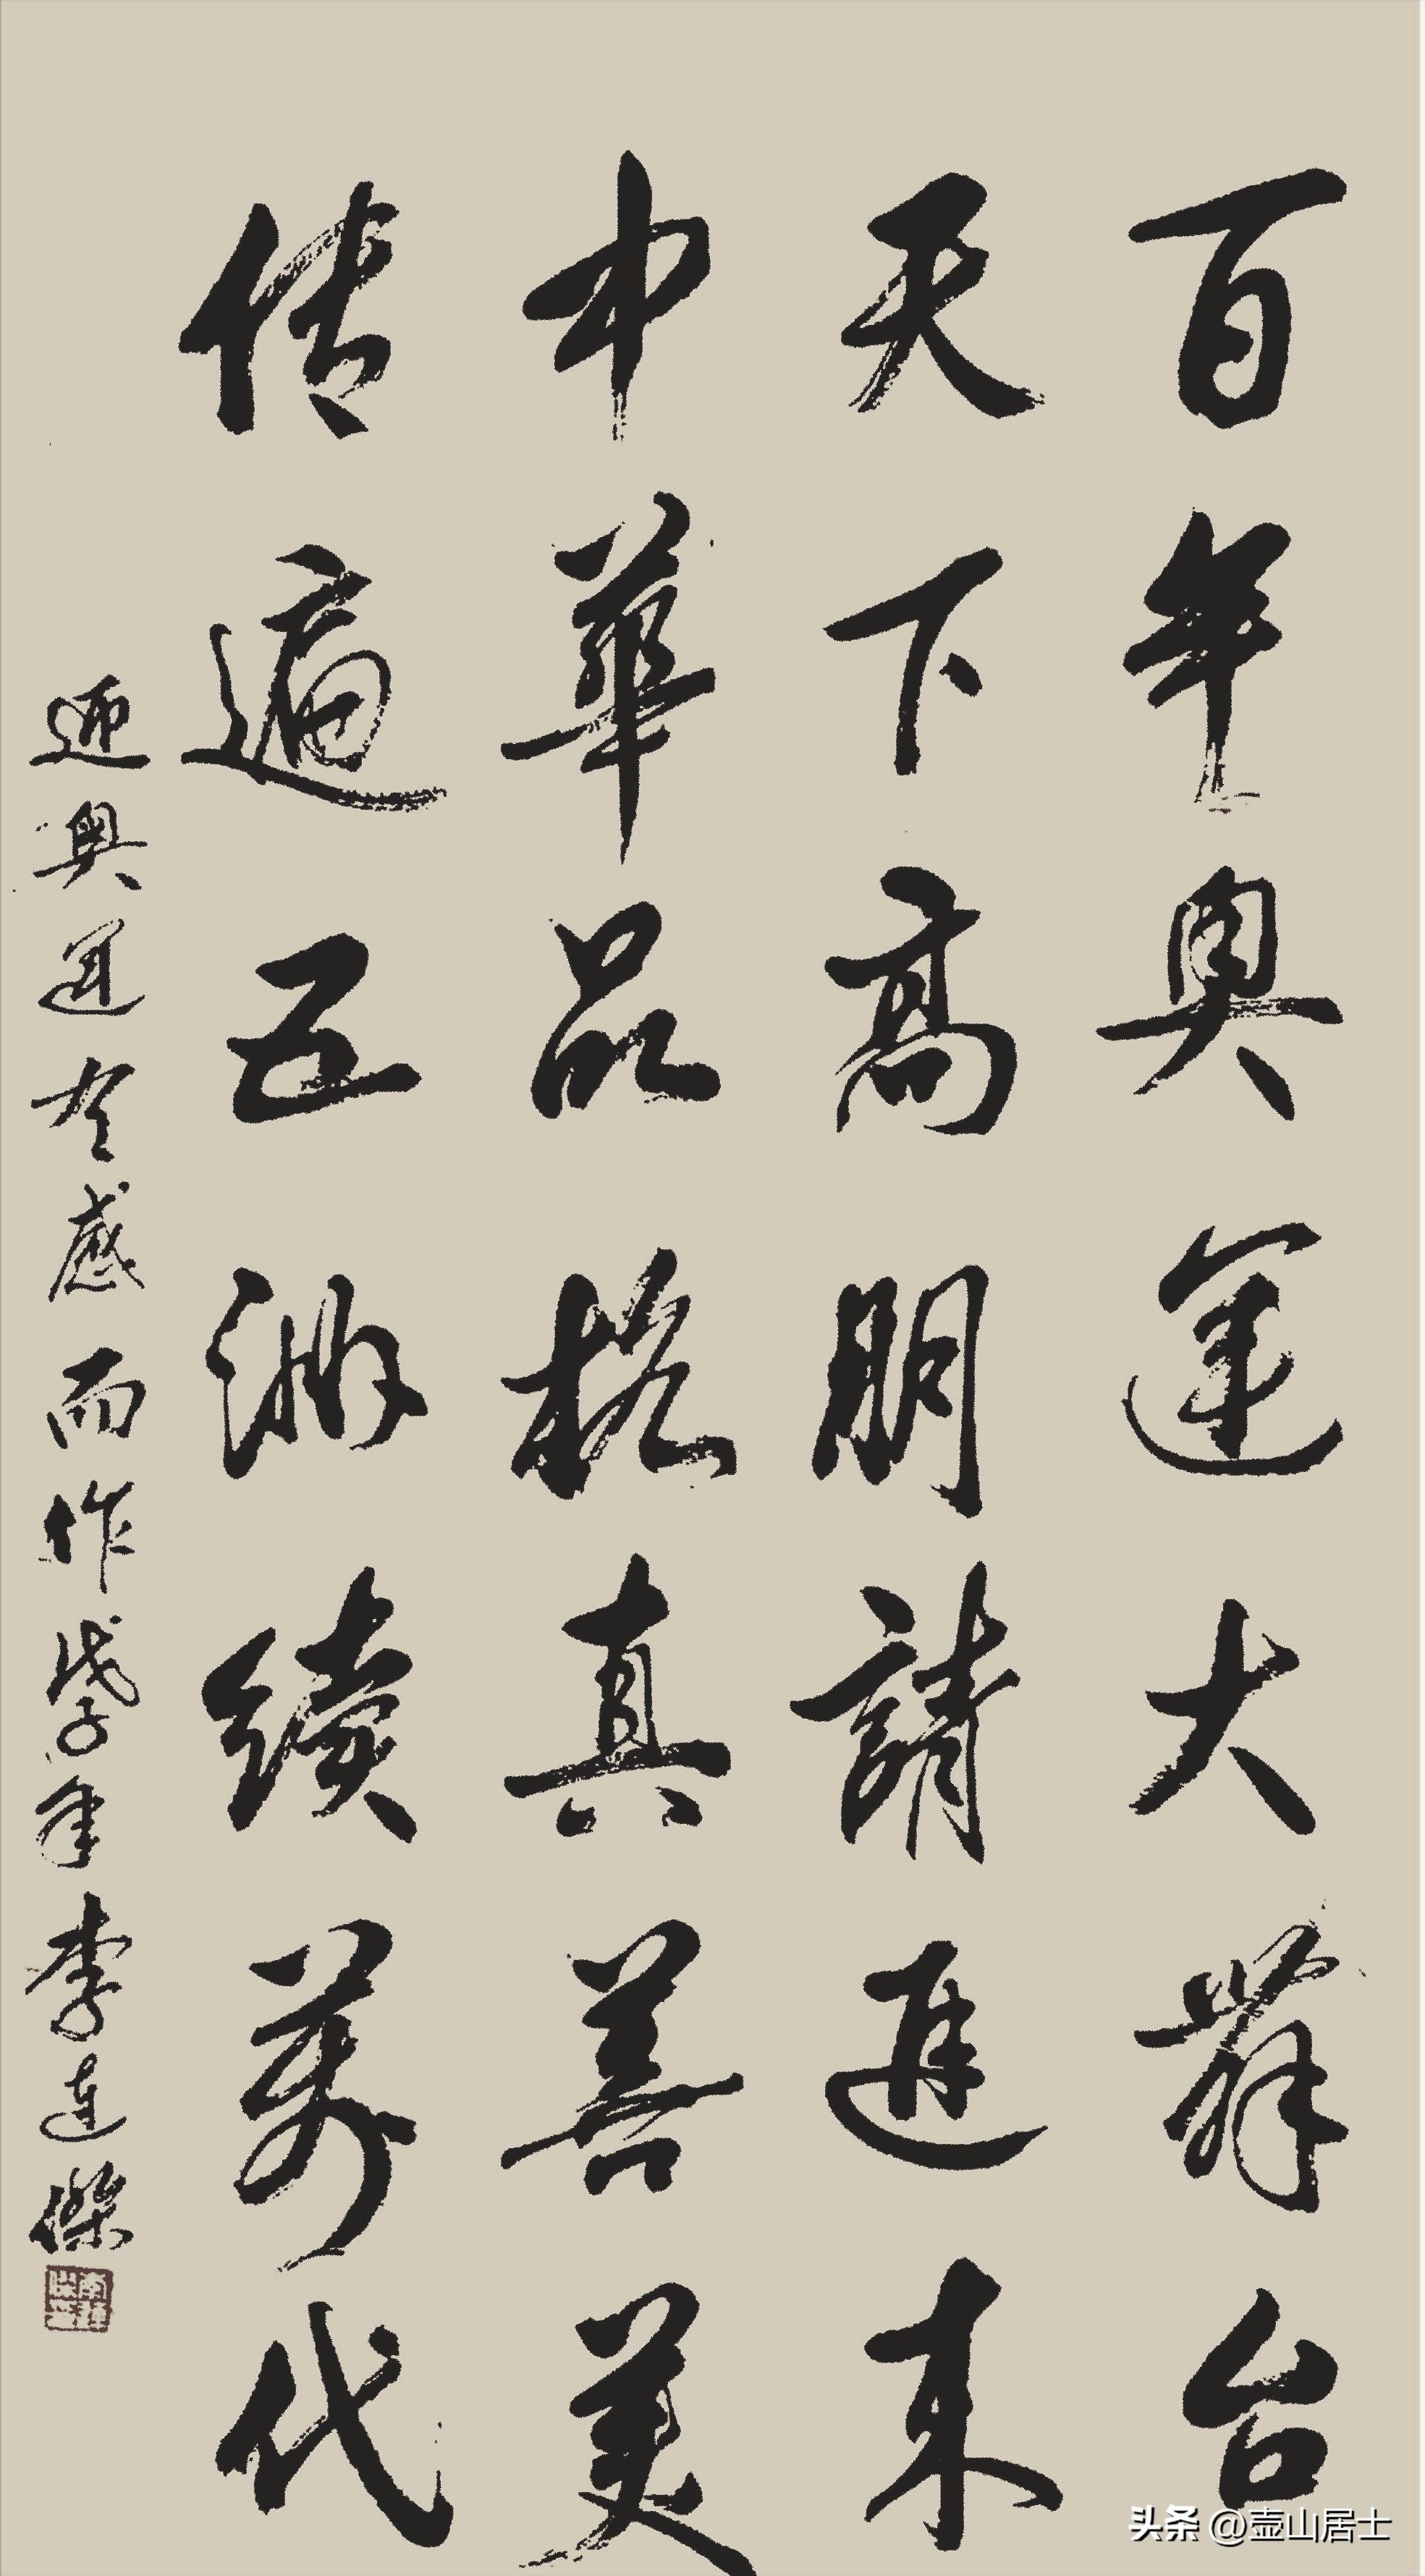 百年奥運大舞台
天下高朋請進来
中華品格真善美
传遍五洲續萬代
迎奥運有感而作戊子年李連傑
头条 @壶山居士